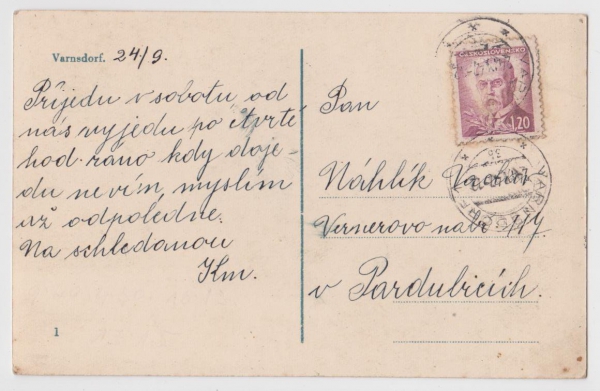 Varnsdorf. 24/9.
Přijedu v sobotu od
nás vyjedu po čtvrté
hod. ráno kdy doje-
du nevím, myslím
až odpoledne.
Na schledanou
Km.
1
ČESKOSLOVENSKO
1.20
VARNSDORF
Pan
Náhlík
Vernerovo nábř.
v Pardubicích.